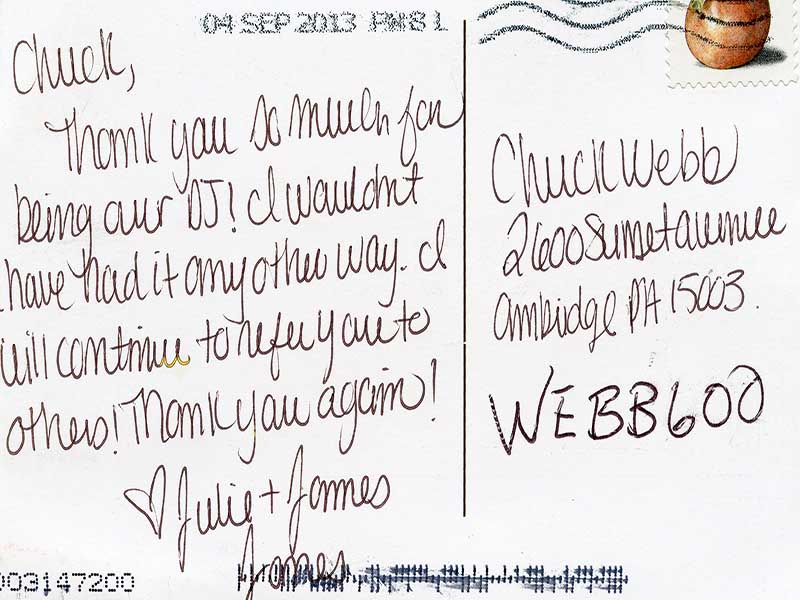 04 SEP 2013 PM 8 L
Chuck,
Thank you so much for
being our DJ! I wouldn't
have had it any other way. I
will continue to refer you to
others! Thank you again!
♡ Julie + James
James
Chuck Webb
2600 Sunset avenue
Ambridge PA 15003.
WEBB600
003147200